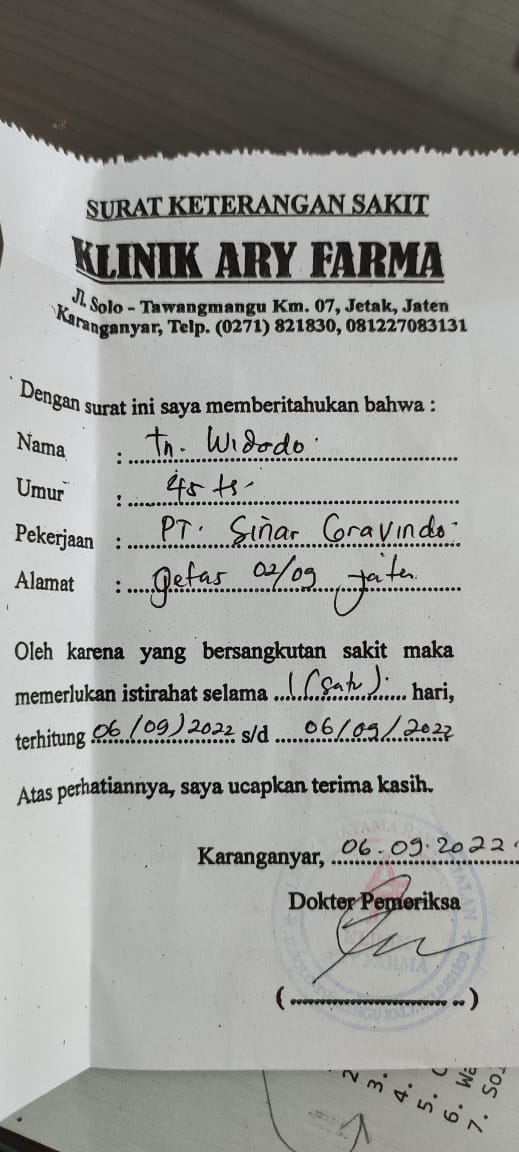 SURAT KETERANGAN SAKIT
KLINIK ARY FARMA
Jl. Solo - Tawangmangu Km. 07, Jetak, Jaten
Karanganyar, Telp. (0271) 821830, 081227083131
Dengan surat ini saya memberitahukan bahwa :
Nama : Tn. Widodo
Umur : 45 th
Pekerjaan : PT. Sinar Gravindo
Alamat : Getas 02/09 Jaten
Oleh karena yang bersangkutan sakit maka
memerlukan istirahat selama 1 (satu) hari,
terhitung 06/09/2022 s/d 06/09/2022
Atas perhatiannya, saya ucapkan terima kasih.
Karanganyar, 06.09.2022
Dokter Pemeriksa
(.........................)
2
3.
4.
5.
6. Wa
7. So